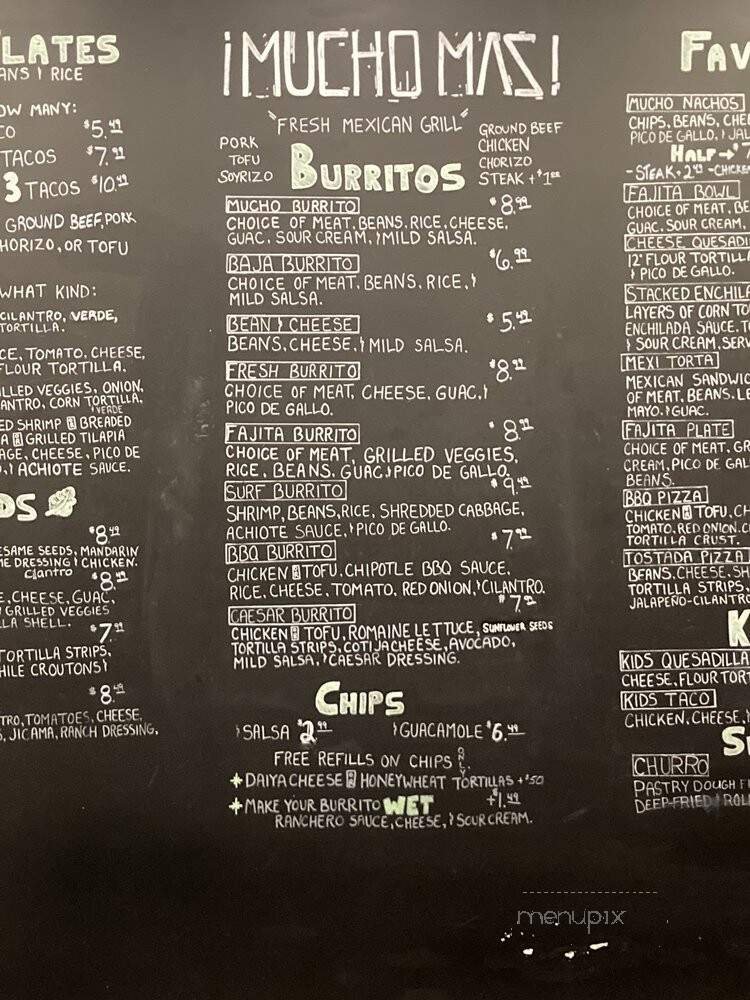 LATES
ANS & RICE
OW MANY:
CO $5.49
TACOS $7.99
3 TACOS $10.49
GROUND BEEF, PORK
HORIZO, OR TOFU
WHAT KIND:
CILANTRO, VERDE,
TORTILLA.
CE, TOMATO, CHEESE,
FLOUR TORTILLA.
LLED VEGGIES, ONION,
ANTRO, CORN TORTILLA,
VERDE
ED SHRIMP OR BREADED
A OR GRILLED TILAPIA
AGE, CHEESE, PICO DE
O, & ACHIOTE SAUCE.
DS
$8.49
ESAME SEEDS, MANDARIN
ME DRESSING & CHICKEN.
cilantro
$8.49
E, CHEESE, GUAC,
GRILLED VEGGIES
LLA SHELL.
$7.99
TORTILLA STRIPS,
HILE CROUTONS &
$8.49
TRO, TOMATOES, CHEESE,
S, JICAMA, RANCH DRESSING,
¡MUCHO MAS!
"FRESH MEXICAN GRILL"
PORK
TOFU
SOYRIZO
BURRITOS
GROUND BEEF
CHICKEN
CHORIZO
STEAK +$1.00
MUCHO BURRITO $8.99
CHOICE OF MEAT, BEANS, RICE, CHEESE,
GUAC, SOUR CREAM, & MILD SALSA.
BAJA BURRITO $6.99
CHOICE OF MEAT, BEANS, RICE, &
MILD SALSA.
BEAN & CHEESE $5.49
BEANS, CHEESE, & MILD SALSA.
FRESH BURRITO $8.99
CHOICE OF MEAT, CHEESE, GUAC, &
PICO DE GALLO.
FAJITA BURRITO $8.99
CHOICE OF MEAT, GRILLED VEGGIES,
RICE, BEANS, GUAC & PICO DE GALLO.
SURF BURRITO $9.49
SHRIMP, BEANS, RICE, SHREDDED CABBAGE,
ACHIOTE SAUCE, & PICO DE GALLO.
BBQ BURRITO $7.99
CHICKEN OR TOFU, CHIPOTLE BBQ SAUCE,
RICE, CHEESE, TOMATO, RED ONION, & CILANTRO.
CAESAR BURRITO $7.99
CHICKEN OR TOFU, ROMAINE LETTUCE, SUNFLOWER SEEDS
TORTILLA STRIPS, COTIJA CHEESE, AVOCADO,
MILD SALSA, & CAESAR DRESSING.
CHIPS
& SALSA $2.99 & GUACAMOLE $6.49
FREE REFILLS ON CHIPS ONLY
+ DAIYA CHEESE OR HONEYWHEAT TORTILLAS +$.50
+ MAKE YOUR BURRITO WET +$1.49
RANCHERO SAUCE, CHEESE, & SOUR CREAM.
FAV
MUCHO NACHOS
CHIPS, BEANS, CHEE
PICO DE GALLO, & JAL
HALF → $7
-STEAK + 2.49 -CHICKEN
FAJITA BOWL
CHOICE OF MEAT, BE
GUAC, SOUR CREAM,
CHEESE QUESADI
12" FLOUR TORTILLA
& PICO DE GALLO.
STACKED ENCHILA
LAYERS OF CORN TO
ENCHILADA SAUCE, T
& SOUR CREAM, SERV
MEXI TORTA
MEXICAN SANDWIC
OF MEAT, BEANS, LE
MAYO, & GUAC.
FAJITA PLATE
CHOICE OF MEAT, GR
CREAM, PICO DE GAL
BEANS.
BBQ PIZZA
CHICKEN OR TOFU, CH
TOMATO, RED ONION, C
TORTILLA CRUST.
TOSTADA PIZZA
BEANS, CHEESE, SH
TORTILLA STRIPS,
JALAPEÑO-CILANTRO
K
KIDS QUESADILLA
CHEESE, FLOUR TORT
KIDS TACO
CHICKEN, CHEESE, &
SW
CHURRO
PASTRY DOUGH F
DEEP-FRIED & ROLL
menupix